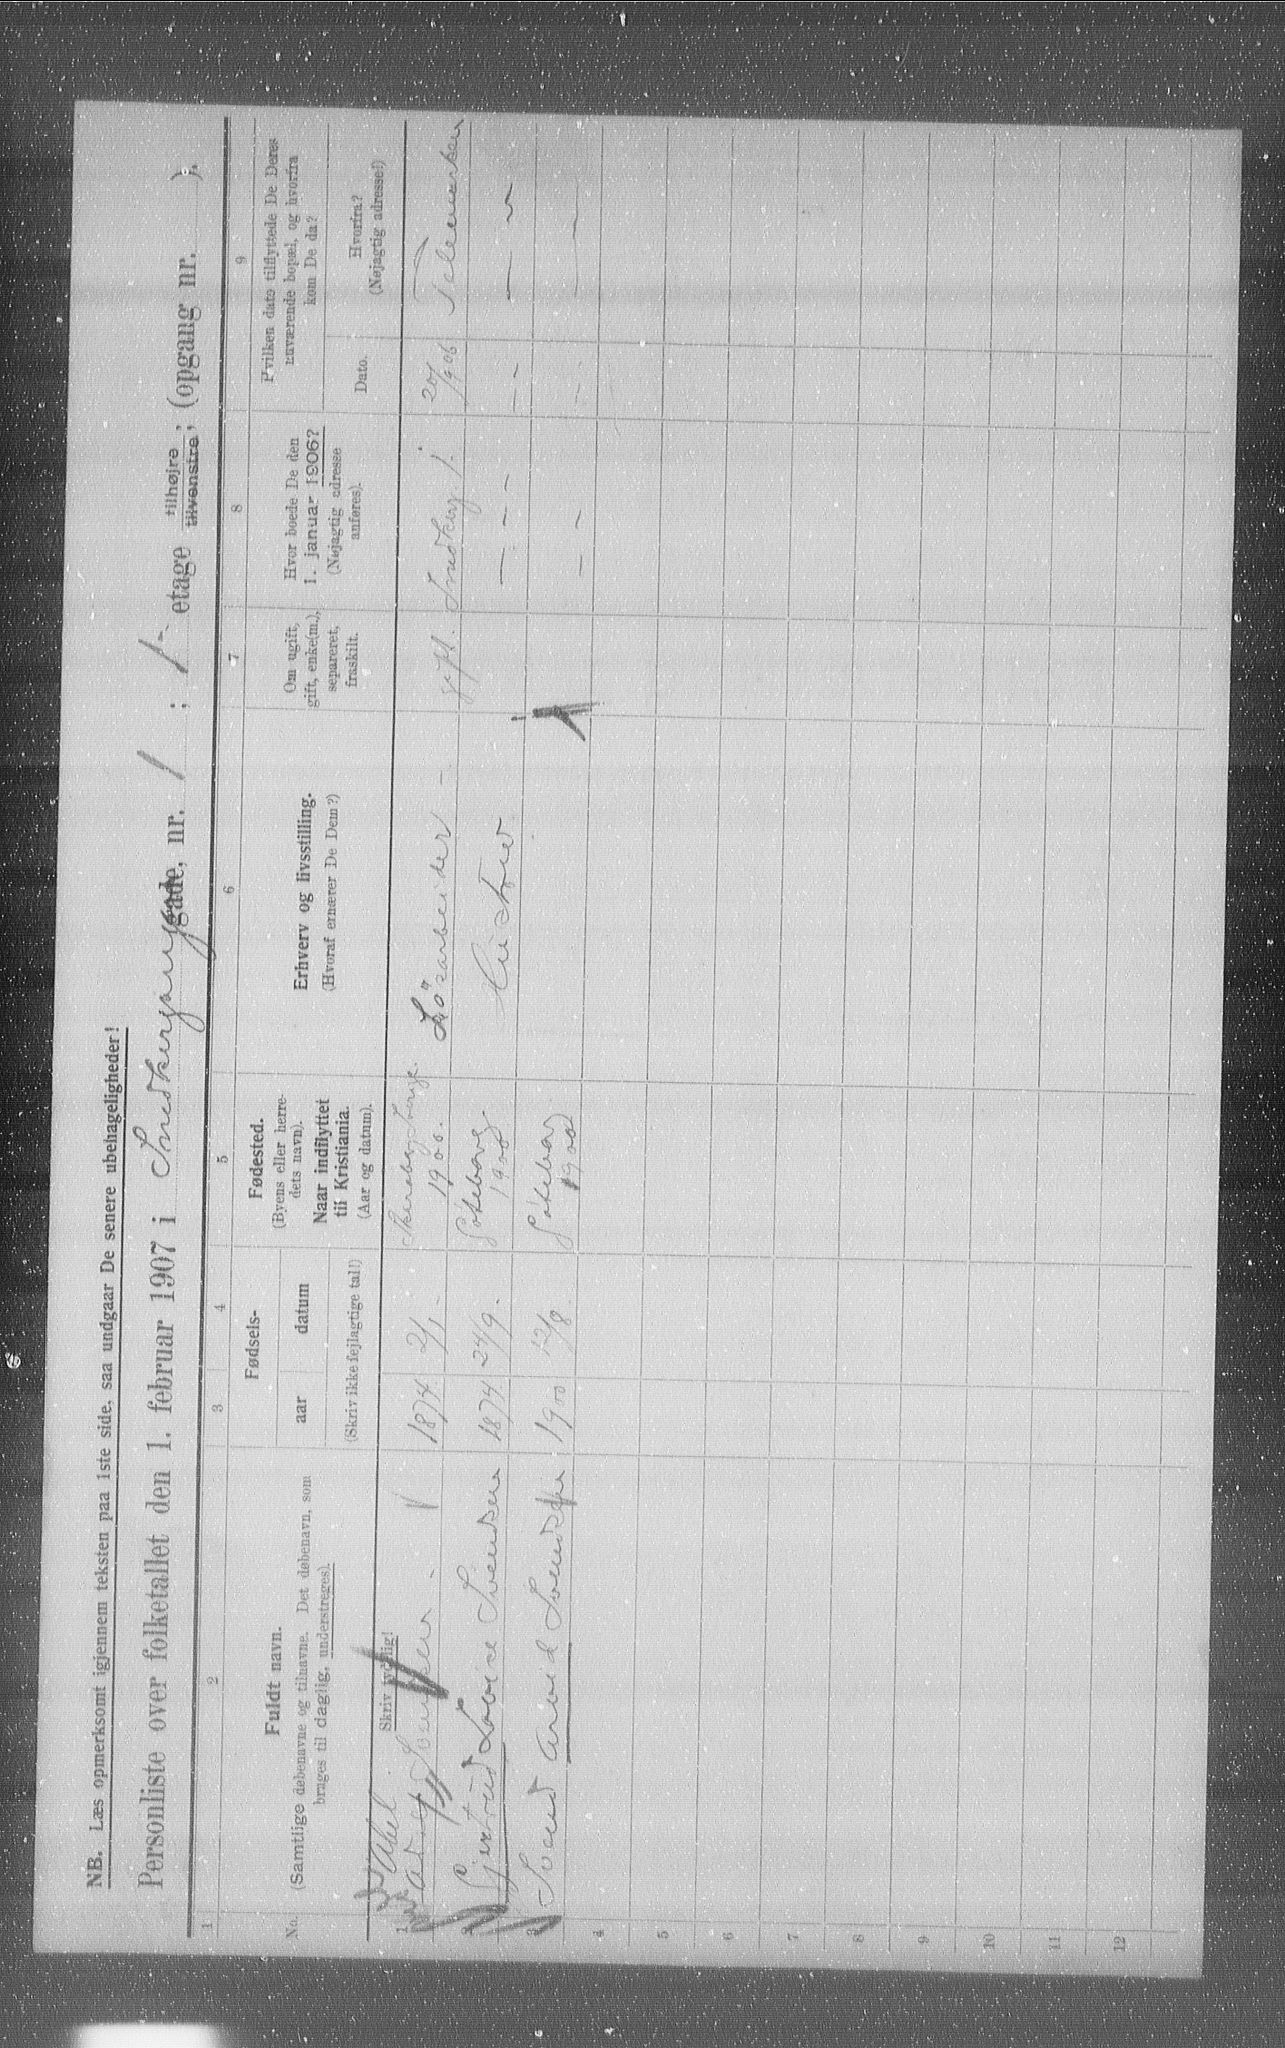 NB. Læs opmerksomt igjennem teksten paa 1ste side, saa undgaar De senere ubehageligheder!
Personliste over folketallet den 1. februar 1907 i Snedkergangen gade, nr. 1 ; 1 etage tilhøjre tilvenstre, (opgang nr. ).
1 2 3 4 5 6 7 8 9
No.
Fuldt navn.
(Samtlige døbenavne og tilnavne. Det døbenavn, som
bruges til daglig, understreges).
Skriv tydelig!
Fødsels-
aar
datum
(Skriv ikke fejlagtige tal!)
Fødested.
(Byens eller herre-
dets navn).
Naar indflyttet
til Kristiania.
(Aar og datum).
Erhverv og livsstilling.
(Hvoraf ernærer De Dem?)
Om ugift,
gift, enke(m.),
separeret,
fraskilt.
Hvor boede De den
1. januar 1906?
(Nøjagtig adresse
anføres).
Hvilken dato tilflyttede De Deres
nuværende bopæl, og hvorfra
kom De da?
Dato.
Hvorfra?
(Nøjagtig adresse!)
Abel
1 Svensen 1874 2/1 Sverige. 1900. Lösarbeider gift. Snedkerg. 1. 20/ 1906 Telemarken
2 Gjertrud Lovise Svensen 1874 24/9. Göteborg 1900 Hustru — — — - - — —
3 Svend Arvid Svendsen 1900 12/8. Göteborg 1900 — — - - — —
4
5
6
7
8
9
10
11
12